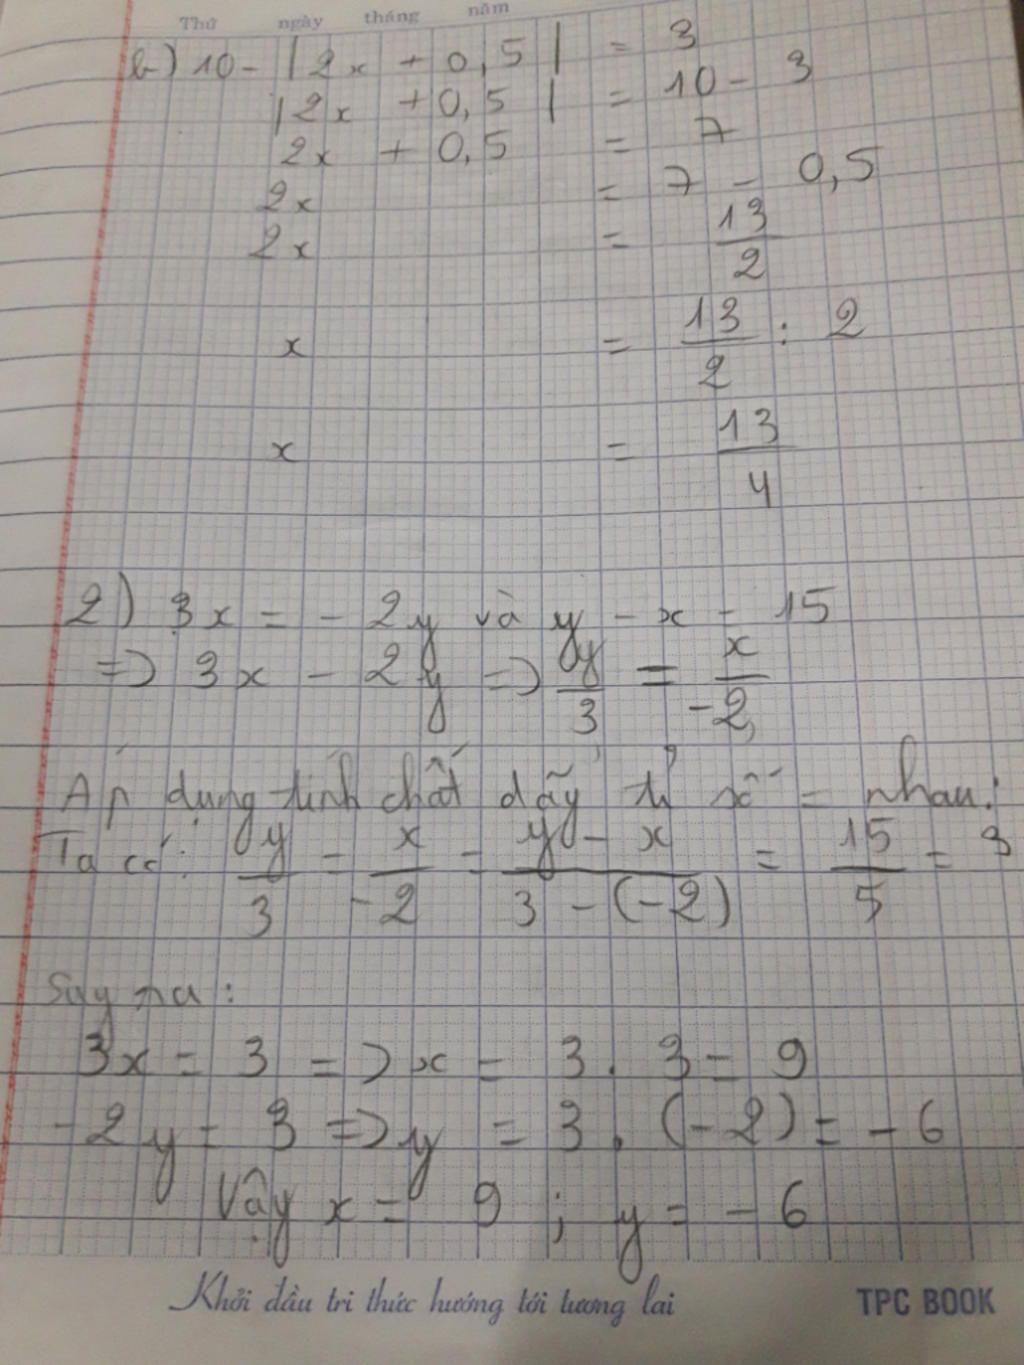 Thứ ngày tháng năm
b) 10 - |2x + 0,5| = 3
|2x + 0,5| = 10 - 3
2x + 0,5 = 7
2x = 7 - 0,5
2x = 13/2
x = 13/2 : 2
x = 13/4
2) 3x = -2y và y - x = 15
=> 3x - 2y => y/3 = x/-2
Áp dụng tính chất dãy tỉ số = nhau:
Ta có: y/3 = x/-2 = y - x/3 - (-2) = 15/5 = 3
Suy ra:
3x = 3 => x = 3 . 3 = 9
-2y = 3 => y = 3 . (-2) = -6
Vậy x = 9 ; y = -6
Khởi đầu tri thức hướng tới tương lai TPC BOOK